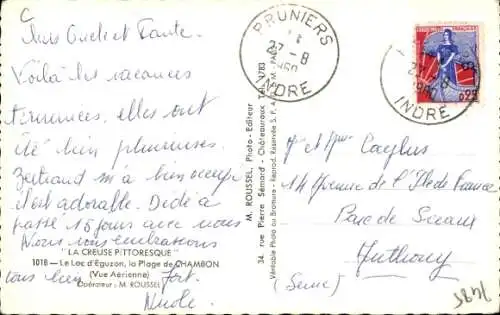 Oncle et Tante.
Voilà les vacances
terminées, elles ont
été bien pluvieuses.
Bertrand m'a bien occupé
il est adorable. Dédé a
passé 15 jours avec nous
Nous vous embrassons
tous bien fort.
"LA CREUSE PITTORESQUE"
1018 - Le Lac d'Eguzon, la Plage de CHAMBON
(Vue Aérienne)
Opérateur : M. ROUSSEL
M. ROUSSEL, Photo-Editeur
34, rue Pierre Sémard - Châteauroux Tél. 1783
Véritable Photo au Bromure - Reprod. Réservée S.P.
PRUNIERS
27-8
1960
INDRE
FRANÇAISE
0,25
INDRE
Mr et Mme Caylus
14 Avenue de l'Ile de France
Parc de Sceaux
Anthony
(Seine)